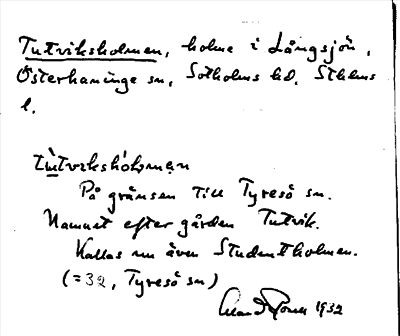 Tutviksholmen, holme i Långsjön,
Österhaninge sn, Sotholms hd, Sthlms
l.
tùtviksholman
På gränsen till Tyresö sn.
Namnet efter gården Tutvik.
Kallas nu även Studentholmen.
(=32, Tyresö sn)
1932